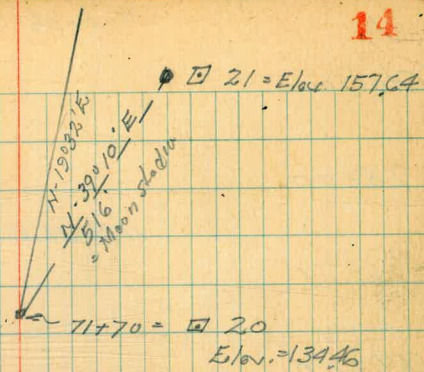 14
⊡ 21 = Elev. 157.64
N-19°32'E
N-39°10'E
516
"Moon stadia
71+70 = ⊡ 20
Elev. = 134.46